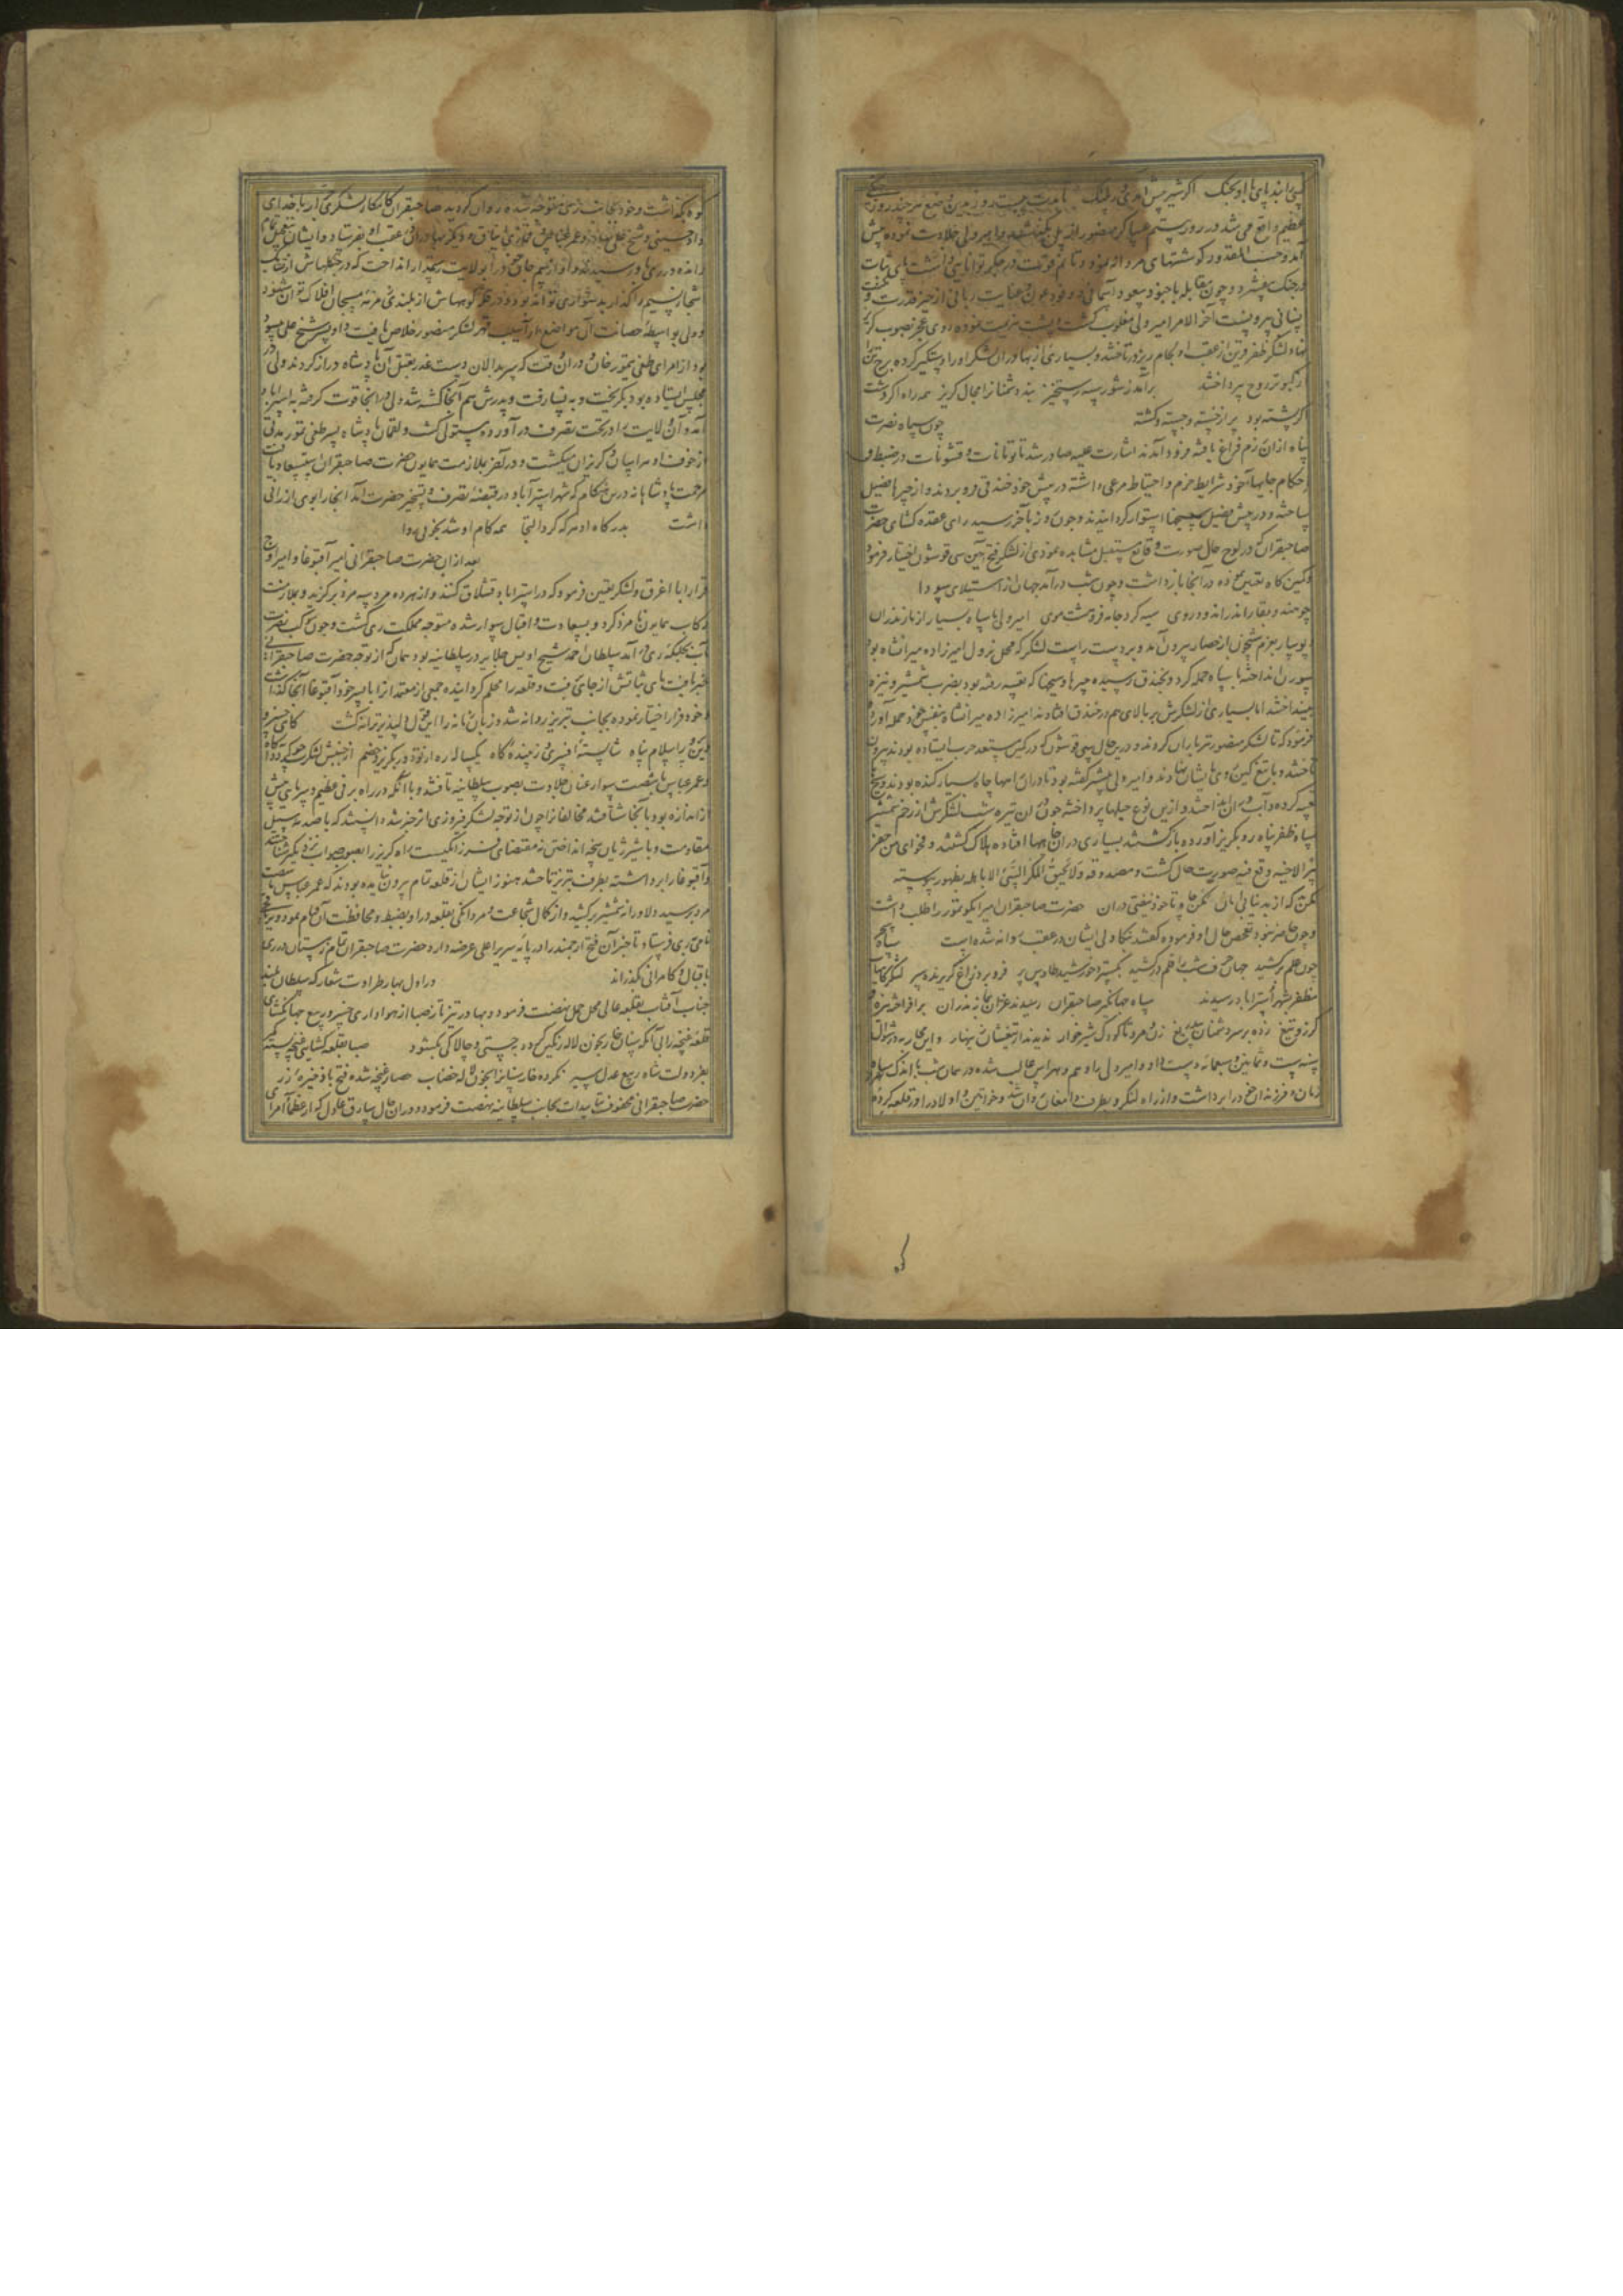 پی را بند پای با او بجنک اکر شیر پیش آمدی کر پلنک تا مدت بیست روز بدین وضع هر چند روز جنکی
عظیم واقع می شد در روز بیستم عساکر منصور از پل بگذشتند و امیر ولی جلادت نموده پیش
آمد و حسب المقدور کوششهای مردانه نمود و تا قوت در جکر توانایی داشت پای ثبات
در جنک بیفشرد و چون مقابله با جنود سعود آسمانی و وفود عون عنایت ربانی از حیز قدرت
انسانی بیرونست آخر الامر امیر ولی مغلوب کشت و پشت بهزیمت نموده روی عجز بصوب کریز
نهاد لشکر ظفر قرین از عقب او بکام ریز در تاختند و بسیاری از بهادران لشکر او را دستکیر کرده برج تن
از کبوتر روح بپرداختند برآمد ز شور سپه رستخیز نبد دشمنانرا مجال کریز همه راه اکر دشت
اکر پشته بود پر از خسته و بسته و کشته چون سپاه نصرت
پناه از ان رزم فراغ یافته فرود آمدند اشارت علیه صادر شد تا تومانات و قشونات در ضبط و
احکام جایهای خود شرایط حزم و احتیاط مرعی داشته در پیش خود خندقی فرو بردند و از چپرها فصیل
ساخته و در پیش فصیل سیخها استوار کردانیدند و چون روز بآخر رسید رای عقده کشای حضرت
صاحبقران که در لوح حال صورت وقایع مستقبل مشاهده نمودی از لشکر فتح آیین سی قوشون اختیار فرمود
و کمین کاه تعیین نموده در آنجا بازداشت و چون شب درآمد جهان از استیلای سودا
چو هندو بقار اندر اندود روی سیه کرد جامه فروهشت موی امیر ولی با سپاه بسیار از مازندران
بعزم شبیخون از حصار بیرون آمد و بر دست راست لشکر که محل نزول امیرزاده میرانشاه بود
سورن انداخته با سپاه حمله کرد و بخندق رسیده چپرها و سیخها که تعبیه رفته بود بضرب شمشیر و نیزه
بینداختند اما بسیاری از لشکرش بر بالای هم در خندق افتادند امیرزاده میرانشاه بنفس خود حمله آورد و
فرمود که تا لشکر منصور تیرباران کردند و درین حال سی قوشون که در کمین مستعد حرب ایستاده بودند بیرون
تاختند و با تیغ کین روی بایشان نهادند و امیر ولی پیشتر کفته بود تا دران راهها چاه بسیار کنده بودند و سیخها
تعبیه کرده و آب دران انداخته و ازین نوع حیلها پرداخته چون ان تیره شب لشکرش از زخم شمشیر
سپاه ظفر پناه رو بکریز آورده بازکشتند بسیاری دران چاهها افتاده هلاک کشتند و فحوای من حفر
بیرا لاخیه وقع فیه صورت حال کشت و مصدوقه ولا یحیق المکر السیئ الا باهله بظهور پیوسته
مکن که از بد نیابی امان مکن چاه تا خود نیفتی دران حضرت صاحبقران امیر ایکو تمور را طلب داشت
و چون حاضر نبود تفحص حال او فرموده کفتند نکاولی ایشان در عقب روانه شده است سپاه سحر
چون علم برکشید جهان حرف شب را قلم درکشید بکسترد خورشید طاوس پر فرو برد زاغ کریزنده سر لشکر کامیاب
مظفر بشهر استراباد رسیدند سپاه جهانکیر صاحبقران رسیدند غران بمازندران برافراخته نیزه و
کرز و تیغ زده بر سر دشمنان بیدریغ زن و مرد تا کودک شیرخوار ندیدند از تیغشان زینهار و این محاربه در شوال
سنه ست و ثمانین و سبعمائه دست داد و امیر ولی را وهم و هراس غالب شده در همان شب با اندک سپاه
زنان و فرزندان خود را برداشت و از راه لنکرو بطرف دامغان روان شد و خواتین و اولاد را در قلعه کرد
کوه بکذاشت و خود بجانب ری متوجه شده روان کردید صاحبقران کامکار لشکری جرار با خدای
داد حسینی و شیخ علی بهادر و عمر عباس و قماری ایناق و دیکر بهادران عقب او بفرستاد و ایشان بتعجیل تمام
رانده در ری باو رسیدند و او از بیم جان خود را بولایت رستمدار انداخت که در جنکلهاش از تشابک
اشجار نسیم را کذار بدشواری تواند بود و در قله کوههاش از بلندی زمزمه مسبحان افلاک توان شنود
و ولی بواسطه حصانت آن مواضع از آسیب قهر لشکر منصور خلاص یافت و او پسر شیخ علی هندو
بود از امرای طغی تیمور خان و دران وقت که سربدالان دست غدر بقتل آن پادشاه دراز کردند ولی در
مجلس ایستاده بود بکریخت و به نسا رفت و پدرش هم آنجا کشته شد ولی از آنجا قوت کرفته به استراباد
آمد و آن ولایت را در تحت تصرف درآورده مستولی کشت و لقمان پادشاه پسر طغی تیمور مدتی
از خوف او هراسان و کریزان میکشت و در آخر بملازمت همایون حضرت صاحبقران بستیسعاد یافت
مرحمت پادشاهانه درین هنکام که شهر استرآباد در قبضه تصرف و تسخیر حضرت آمد آنجا را بوی ارزانی
داشت بدرکاه او هر که کرد التجا همه کام او شد بخوبی روا
بعد از ان حضرت صاحبقرانی امیر آقبوغا و امیر اوج
قرا را با اغرق و لشکر تعیین فرمود که در استراباد قشلاق کنند و از هر ده مرد سه مرد برکزید و بملازمت
رکاب همایون نامزد کرد و بسعادت و اقبال سوار شده متوجه مملکت ری کشت و چون کوکب نصرت
مآب بجلکه ری درآمد سلطان احمد شیخ اویس جلایر در سلطانیه بود همان که از توجه حضرت صاحبقرانی
خبر یافت پای ثباتش از جای برفت و قلعه را محکم کردانیده جمعی از معتمدانرا با پسر خود آقبوغا آنجا کذاشت
و خود فرار اختیار نموده بجانب تبریز روانه شد و زبان زمانه را این قول دلپذیر ترانه کشت کای خسرو
دین پرور اسلام پناه شایسته افسری و زیبنده کاه یکساله ره از تو در کریزد خصم از جنبش لشکرت چو کردد آکاه
و عمر عباس با شصت سوار عنان جلادت بصوب سلطانیه تافتند و با آنکه در راه برفی عظیم و سرمای بیش
از اندازه بود بآنجا شتافتند مخالفان چون از توجه لشکر فیروزی اثر خبر شد دانستند که با صدمه سیل
مقاومت و با شیر ژیان پنجه انداختن نه مقتضای فرزانکیست راه کریز را بصوب صواب نزدیکتر شناختند
و آقبوغا را برداشته بطرف تبریز تاختند هنوز ایشان از قلعه تمام بیرون نیامده بودند که عمر عباس با شصت
مرد برسید و دلاورانه شمشیر برکشید و از کمال شجاعت و مردانکی بقلعه درآمد و بضبط و محافظت آن قیام نمود و نوکری
نامی بری فرستاد تا خبر آن فتح ارجمند را در پایه سریر اعلی عرضه دارد حضرت صاحبقران تمام زمستان در ری
باقبال و کامرانی بکذراند و در اول بهار طراوت شعار که سلطان بلند
جناب آفتاب بقلعه عالی محل حمل نهضت فرمود و بهادر تیزتاز صبا از هواداری خسرو ربیع جهانکشای
قلعه غنچه را بی آنکه سنان خار بخون لاله رنکین کردد بچستی و چالاکی بکشود صبا بقلعه کشایی غنچه بسته کمر
بفر دولت شاه ربیع عدل سیر نکرده خار سنانرا بخون لاله خضاب حصار غنچه شده فتح با ذخیره زر
حضرت صاحبقرانی محفوف بتاییدات بجانب سلطانیه نهضت فرمود و دران حال سارق عادل که از عظما امرای